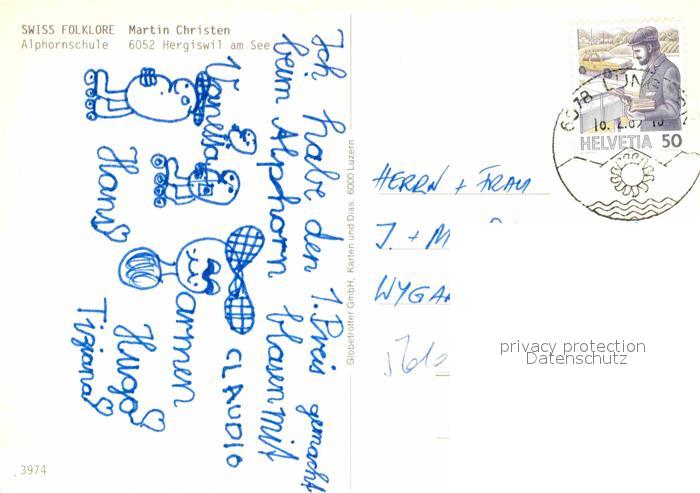 SWISS FOLKLORE Martin Christen
Alphornschule 6052 Hergiswil am See
Ich habe den 1. Preis gemacht
beim Alphorn blasen mit
Vanessa
Hans
Carmen
CLAUDIO
Hugo
Tiziana
Globetrotter GmbH, Karten und Dias, 6000 Luzern
3974
HELVETIA 50
6078 LUNGERN
HERRN + FRAU
J. + M
WYGA
privacy protection
Datenschutz